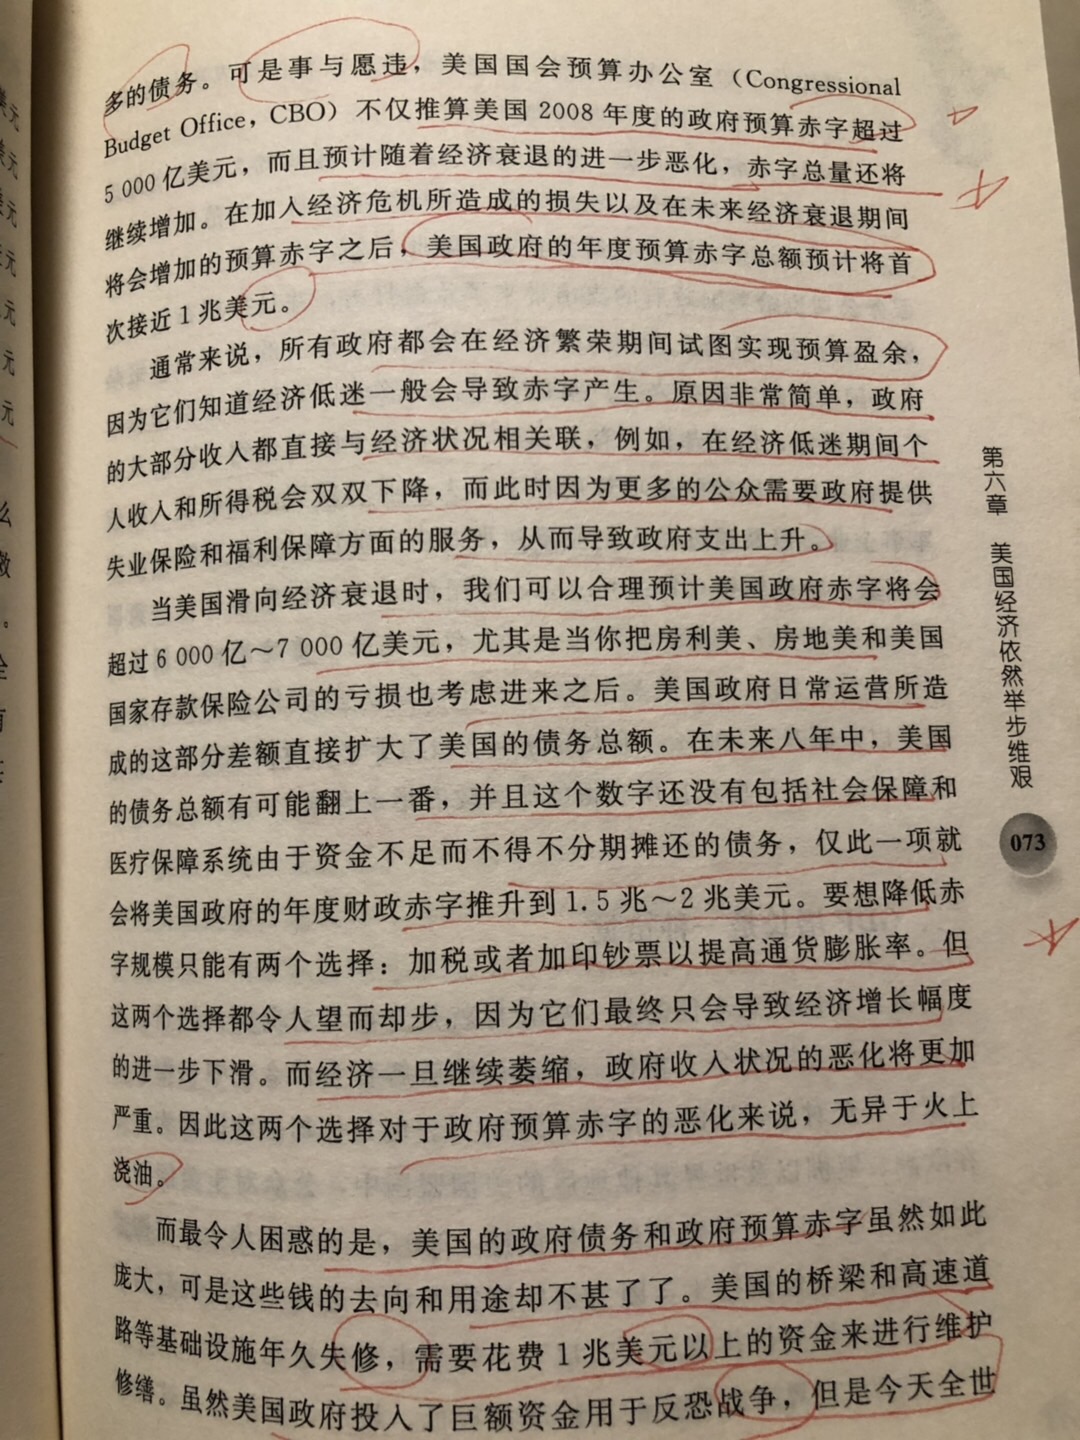 多的债务。可是事与愿违，美国国会预算办公室（Congressional
Budget Office，CBO）不仅推算美国 2008 年度的政府预算赤字超过
5 000 亿美元，而且预计随着经济衰退的进一步恶化，赤字总量还将
继续增加。在加入经济危机所造成的损失以及在未来经济衰退期间
将会增加的预算赤字之后，美国政府的年度预算赤字总额预计将首
次接近 1 兆美元。
通常来说，所有政府都会在经济繁荣期间试图实现预算盈余，
因为它们知道经济低迷一般会导致赤字产生。原因非常简单，政府
的大部分收入都直接与经济状况相关联，例如，在经济低迷期间个
人收入和所得税会双双下降，而此时因为更多的公众需要政府提供
失业保险和福利保障方面的服务，从而导致政府支出上升。
当美国滑向经济衰退时，我们可以合理预计美国政府赤字将会
超过 6 000 亿～7 000 亿美元，尤其是当你把房利美、房地美和美国
国家存款保险公司的亏损也考虑进来之后。美国政府日常运营所造
成的这部分差额直接扩大了美国的债务总额。在未来八年中，美国
的债务总额有可能翻上一番，并且这个数字还没有包括社会保障和
医疗保障系统由于资金不足而不得不分期摊还的债务，仅此一项就
会将美国政府的年度财政赤字推升到 1.5 兆～2 兆美元。要想降低赤
字规模只能有两个选择：加税或者加印钞票以提高通货膨胀率。但
这两个选择都令人望而却步，因为它们最终只会导致经济增长幅度
的进一步下滑。而经济一旦继续萎缩，政府收入状况的恶化将更加
严重。因此这两个选择对于政府预算赤字的恶化来说，无异于火上
浇油。
而最令人困惑的是，美国的政府债务和政府预算赤字虽然如此
庞大，可是这些钱的去向和用途却不甚了了。美国的桥梁和高速道
路等基础设施年久失修，需要花费 1 兆美元以上的资金来进行维护
修缮。虽然美国政府投入了巨额资金用于反恐战争，但是今天全世
第六章 美国经济依然举步维艰
073